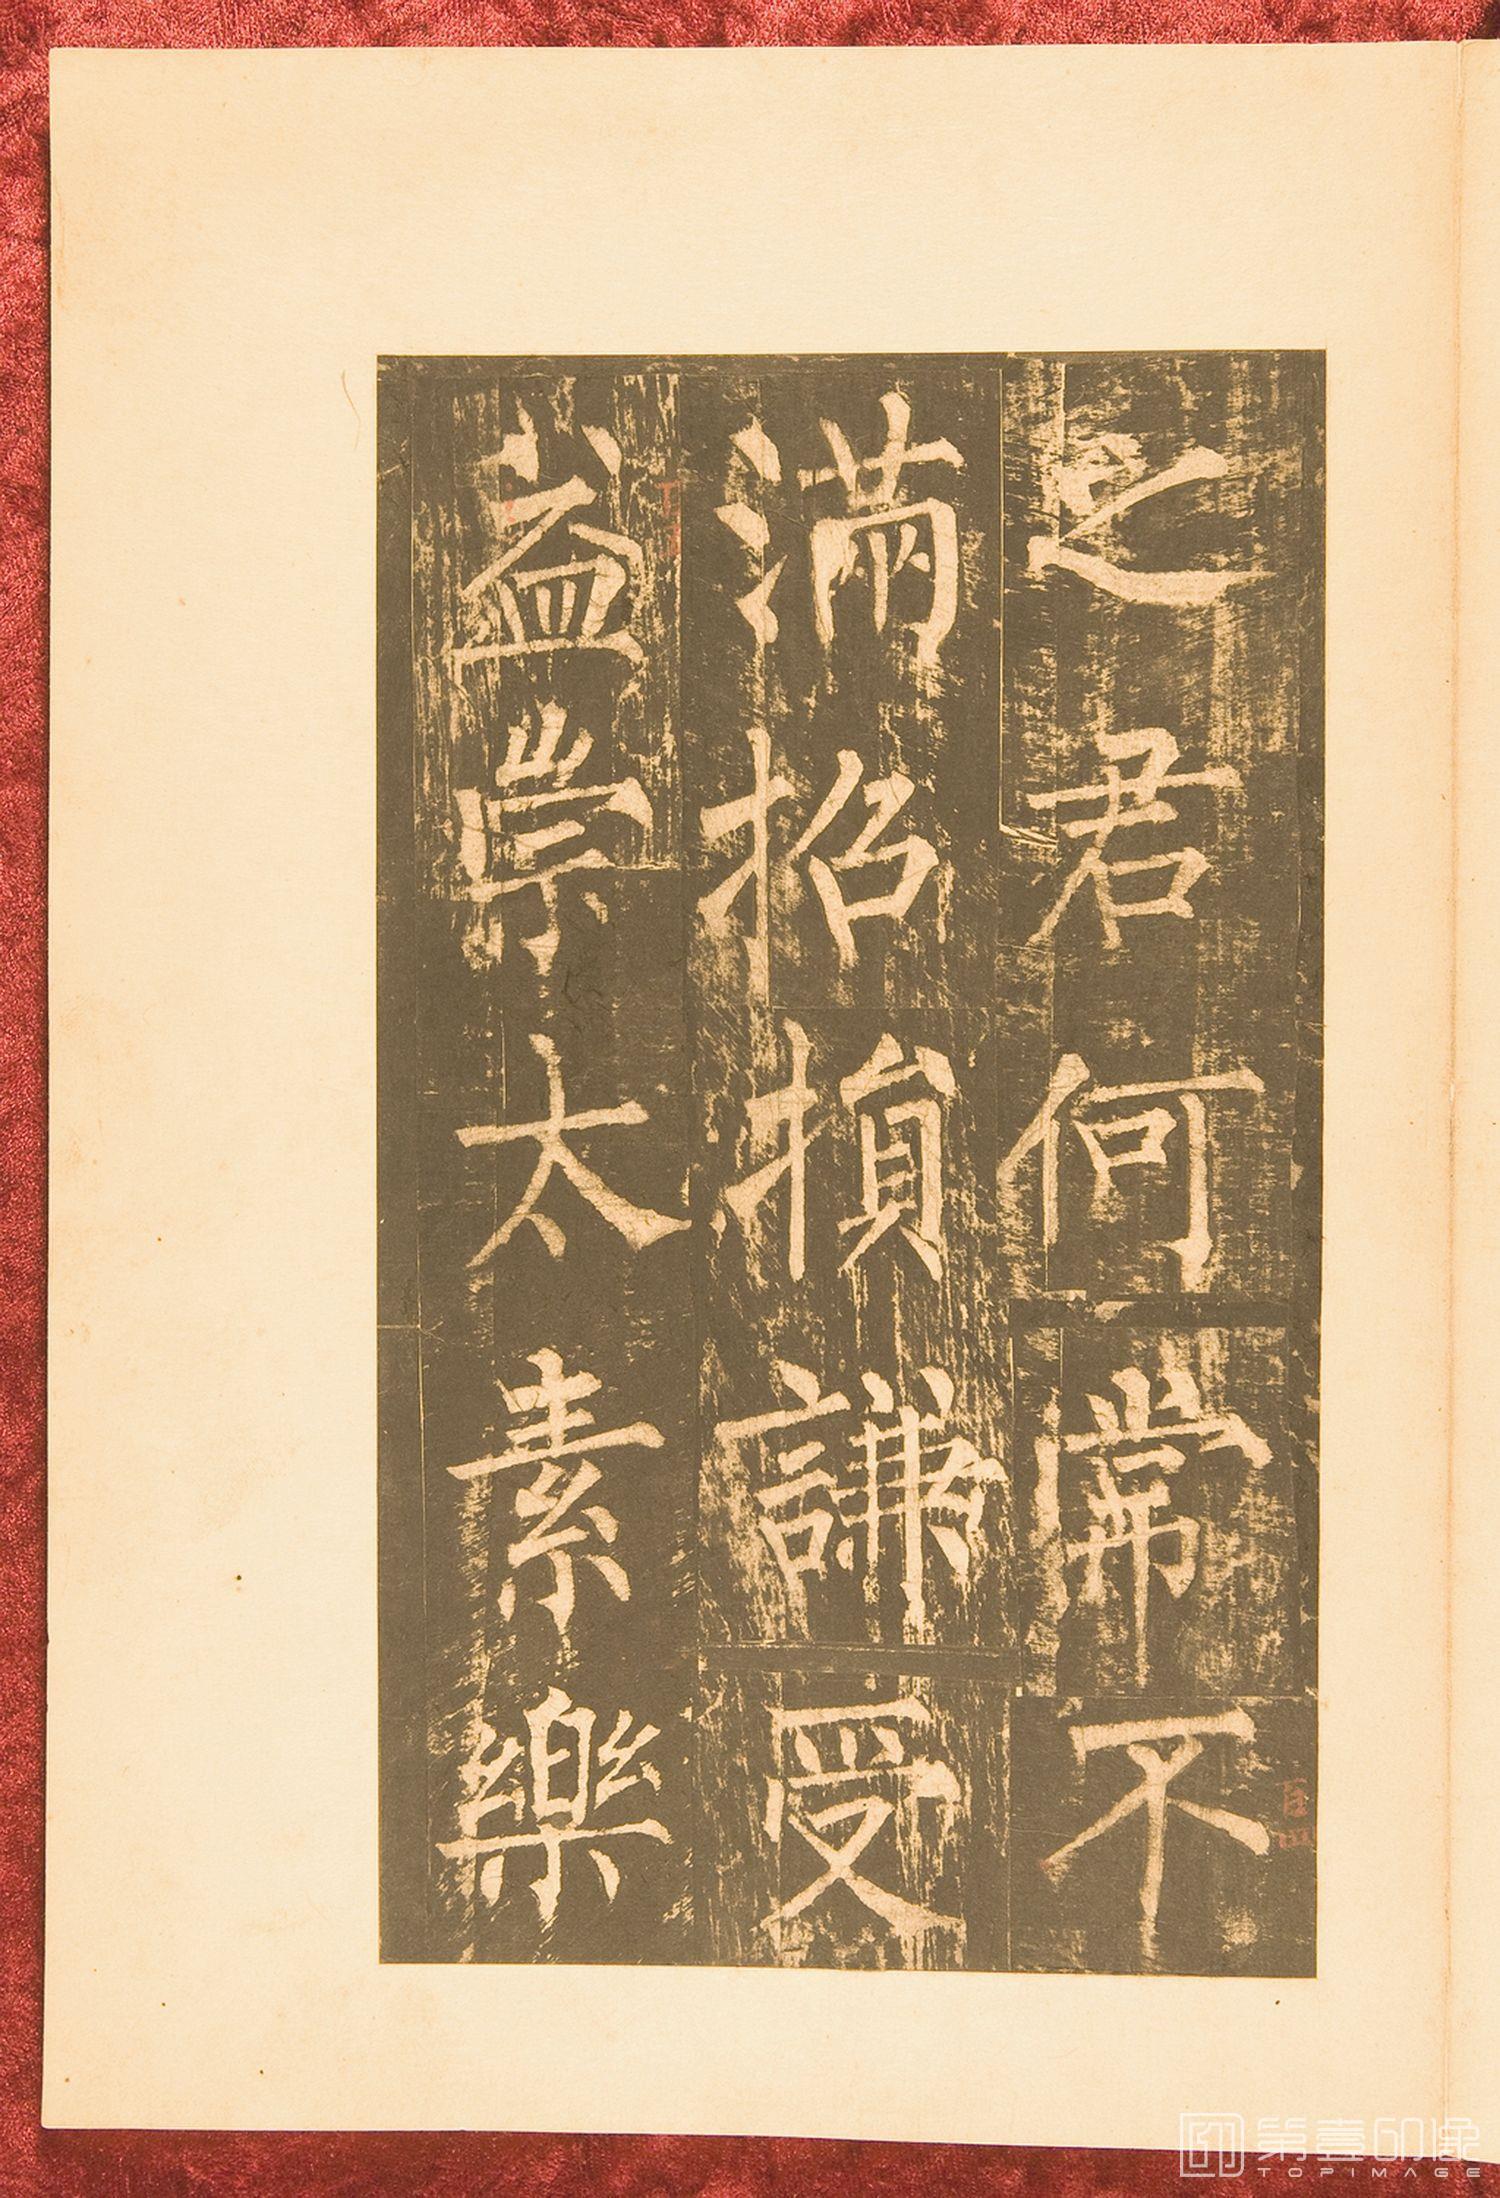 之君何常不
滿招損謙受
益崇太素樂
第壹印像
TOPIMAGE